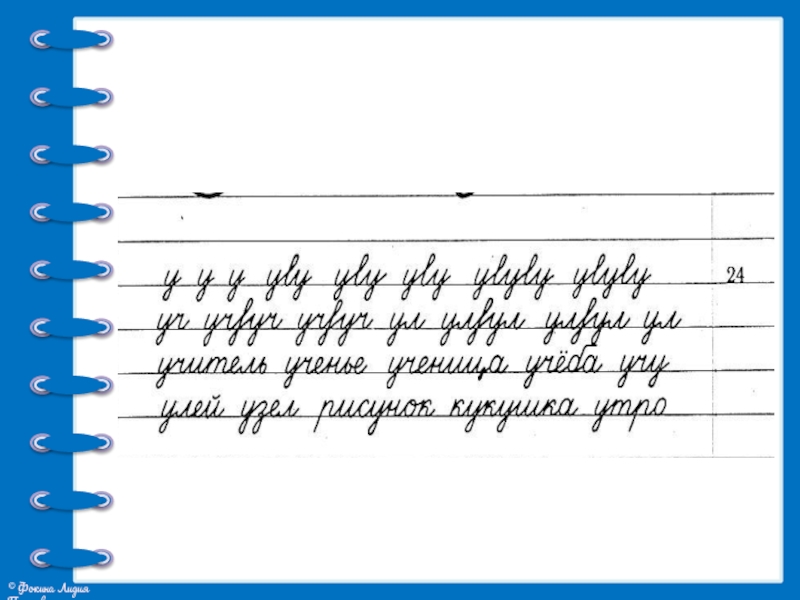 у у у уву уву уву увуву увуву
24
уч учвуч учвуч ул улвул улвул ул
учитель ученье ученица учёба учу
улей узел рисунок кукушка утро
© Фокина Лидия